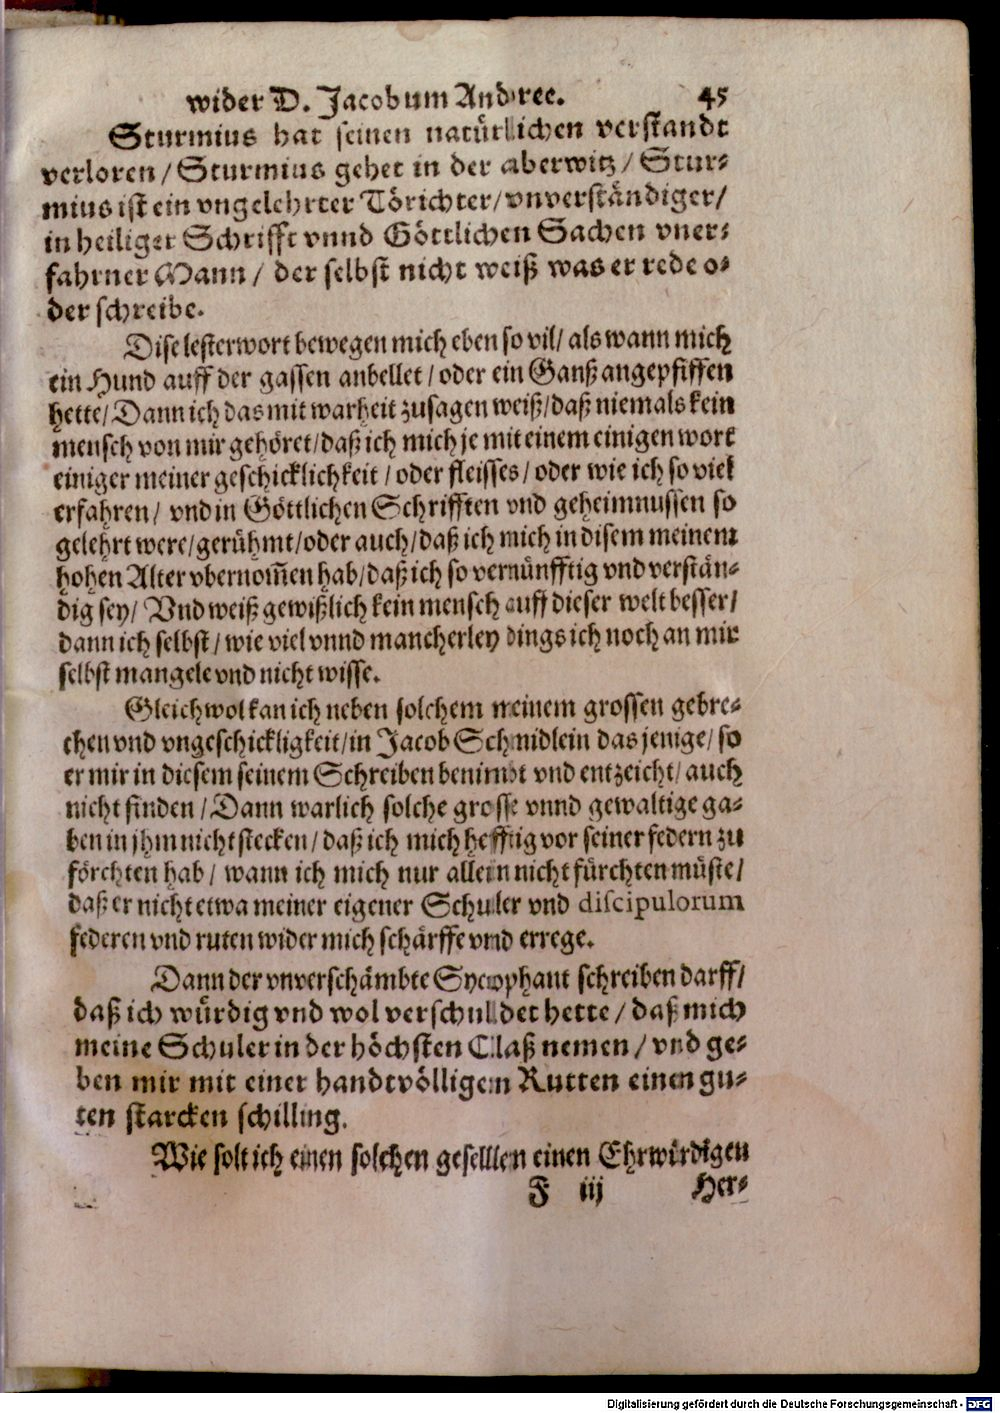 wider D. Jacobum Andree. 45
Sturmius hat seinen natürlichen verstandt
verloren / Sturmius gehet in der aberwitz / Stur-
mius ist ein vngelehrter Törichter / vnverständiger /
in heiliger Schrifft vnnd Göttlichen Sachen vner-
fahrner Mann / der selbst nicht weiß was er rede o-
der schreibe.
Dise lesterwort bewegen mich eben so vil / als wann mich
ein Hund auff der gassen anbellet / oder ein Ganß angepfiffen
hette / Dann ich das mit warheit zusagen weiß / daß niemals kein
mensch von mir gehöret / daß ich mich je mit einem einigen wort
einiger meiner geschicklichkeit / oder fleisses / oder wie ich so viel
erfahren / vnd in Göttlichen Schrifften vnd geheimnussen so
gelehrt were / gerühmt / oder auch / daß ich mich in disem meinem
hohen Alter vbernom̃en hab / daß ich so vernünfftig vnd verstän-
dig sey / Vnd weiß gewißlich kein mensch auff dieser welt besser /
dann ich selbst / wie viel vnnd mancherley dings ich noch an mir
selbst mangele vnd nicht wisse.
Gleichwol kan ich neben solchem meinem grossen gebre-
chen vnd vngeschickligkeit / in Jacob Schmidlein das jenige / so
er mir in diesem seinem Schreiben benimbt vnd entzeicht / auch
nicht finden / Dann warlich solche grosse vnnd gewaltige ga-
ben in jhm nicht stecken / daß ich mich hefftig vor seiner federn zu
förchten hab / wann ich mich nur allein nicht fürchten müste /
daß er nicht etwa meiner eigener Schuler vnd discipulorum
federen vnd ruten wider mich schärffe vnd errege.
Dann der vnverschämbte Sycophant schreiben darff /
daß ich würdig vnd wol verschuldet hette / daß mich
meine Schuler in der höchsten Claß nemen / vnd ge-
ben mir mit einer handtvölligen Rutten einen gu-
ten starcken schilling.
Wie solt ich einen solchen gesellen einen Ehrwirdigen
F iij Her-
Digitalisierung gefördert durch die Deutsche Forschungsgemeinschaft - DFG